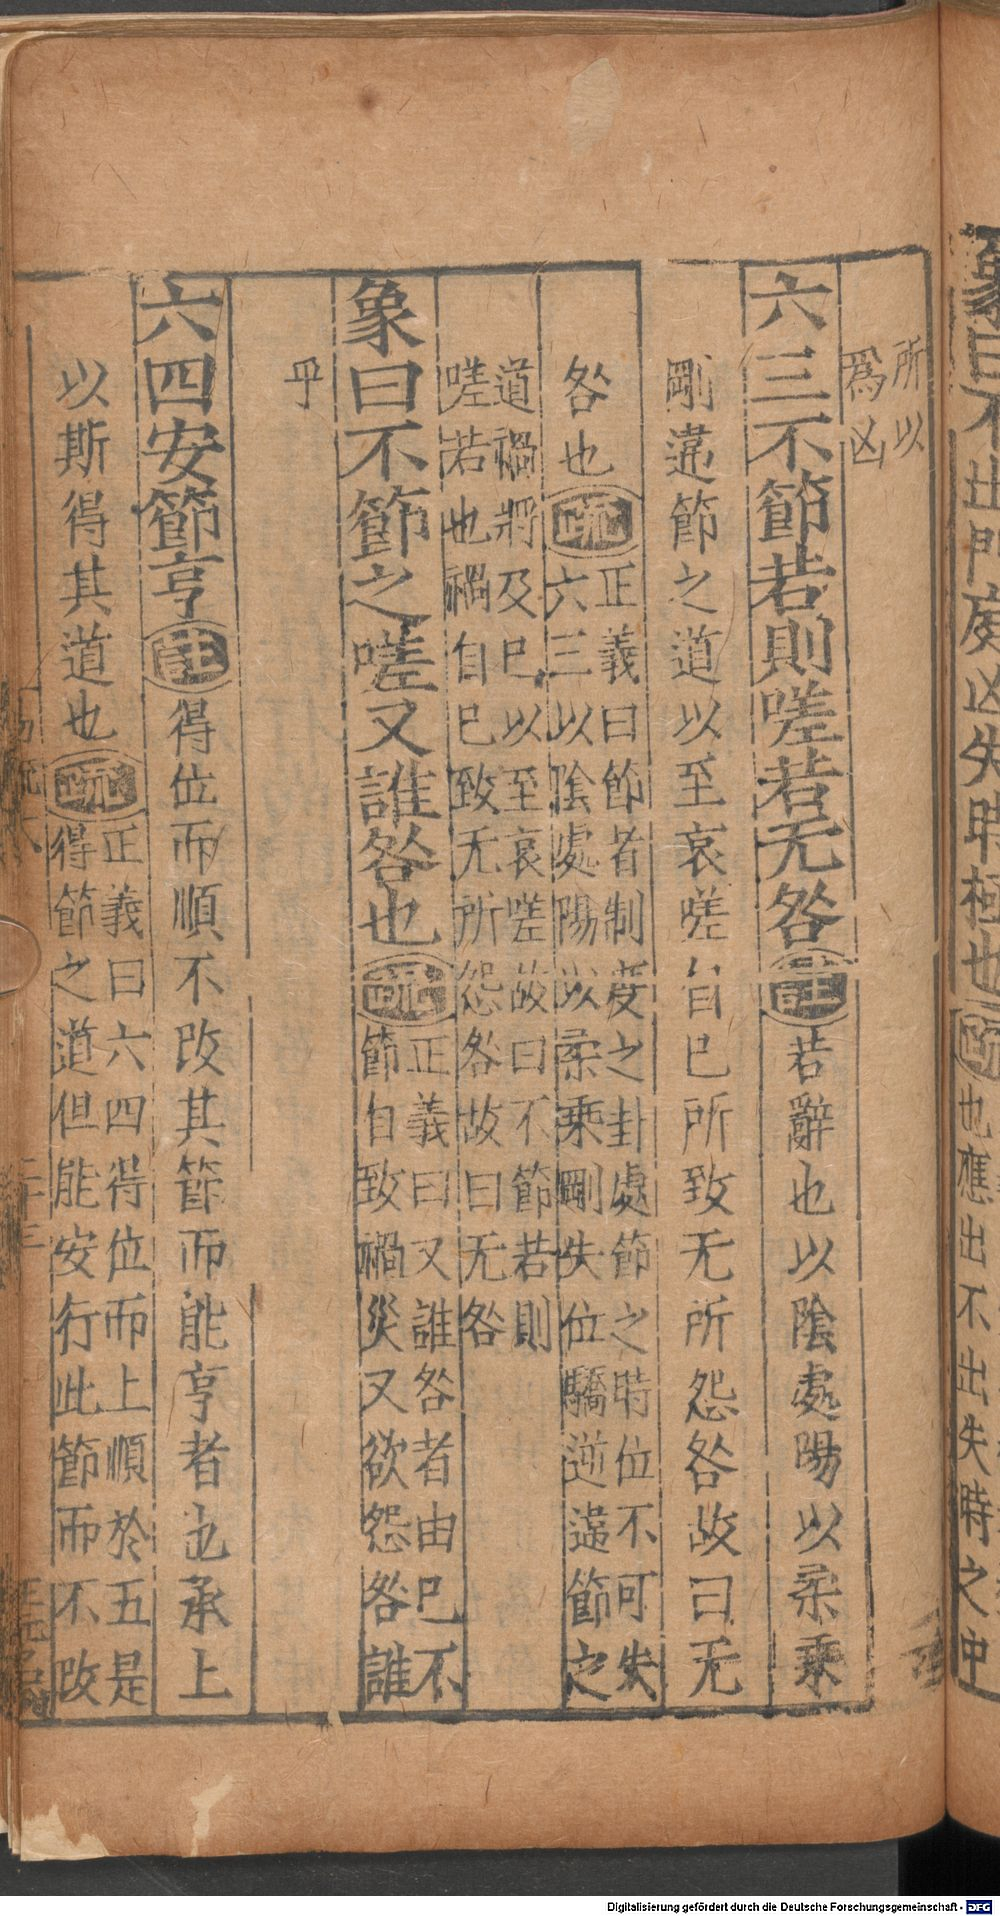 象曰不出門庭凶失時極也疏
也應出不出失時之中
所以
爲凶
六三不節若則嗟若无咎註若辭也以陰處陽以柔乘
剛違節之道以至哀嗟自已所致无所怨咎故曰无
咎也疏正義曰節者制度之卦處節之時位不可失
六三以陰處陽以柔乘剛失位驕逆違節之
道禍將及已以至哀嗟故曰不節若則
嗟若也禍自已致无所怨咎故曰无咎
象曰不節之嗟又誰咎也疏正義曰又誰咎者由已不
節自致禍災又欲怨咎誰
乎
六四安節亨註得位而順不改其節而能亨者也承上
以斯得其道也疏正義曰六四得位而上順於五是
得節之道但能安行此節而不改
Digitalisierung gefördert durch die Deutsche Forschungsgemeinschaft - DFG